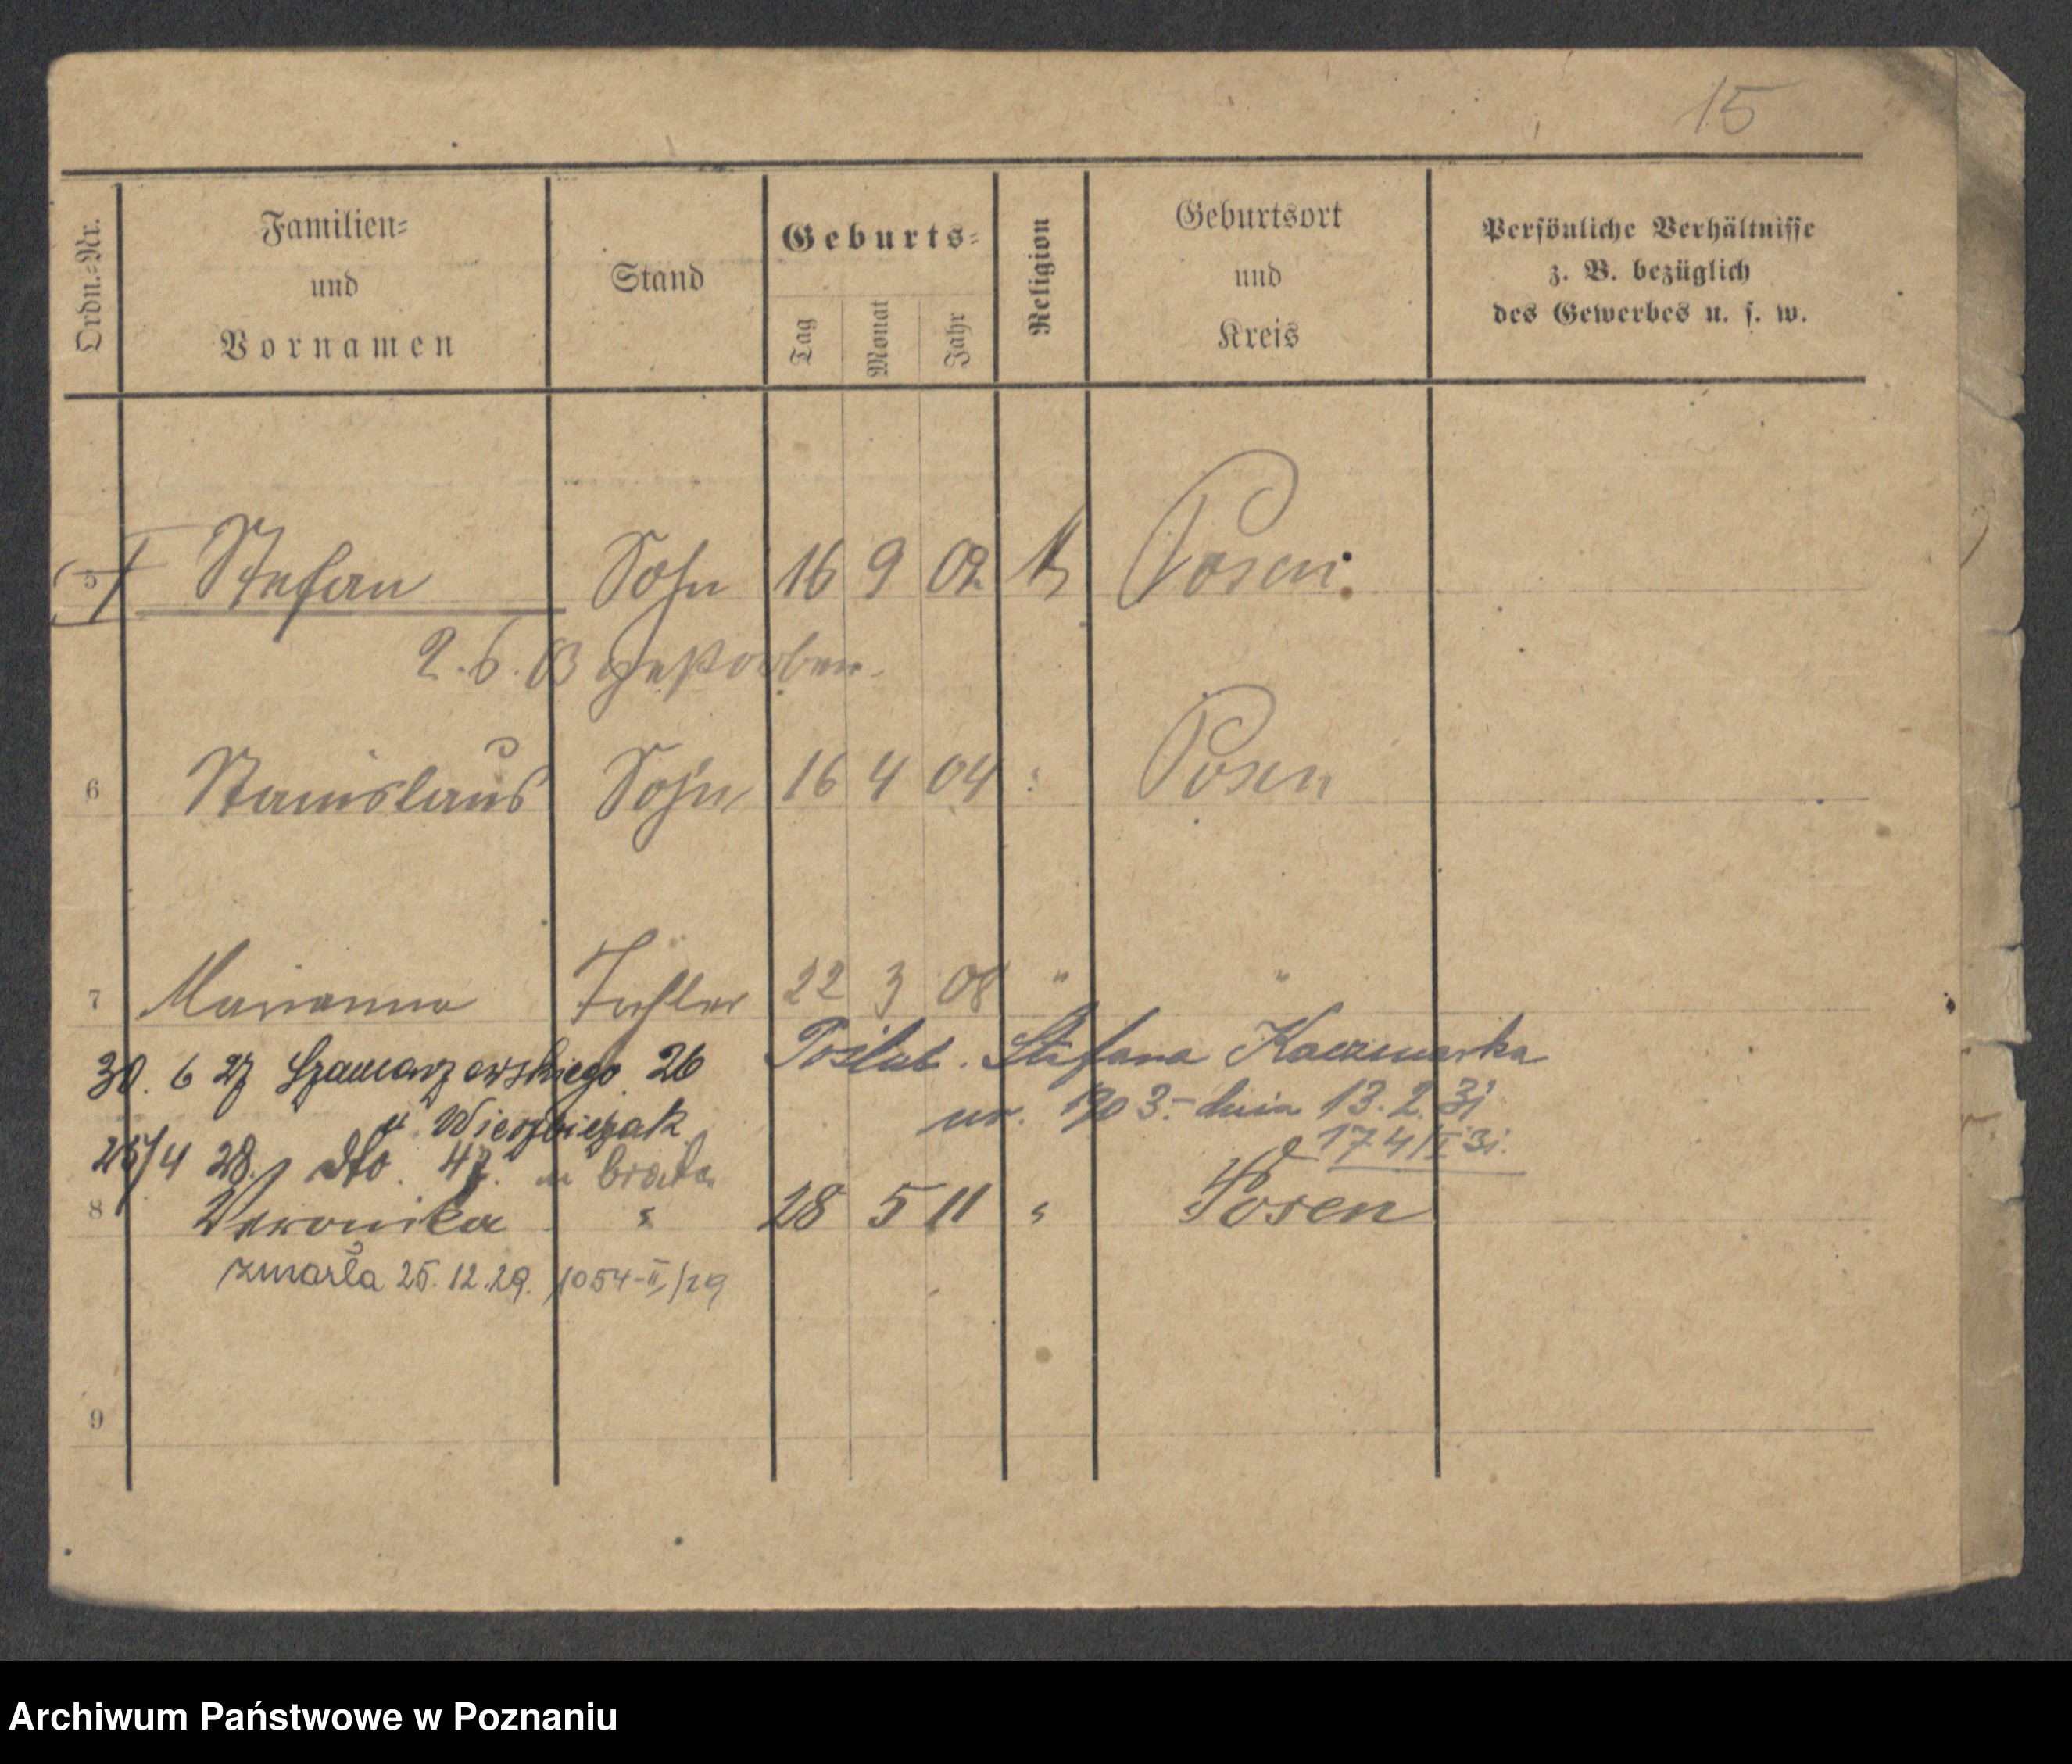 15
Ordn.=Nr.
Familien=
und
Vornamen
Stand
Geburts=
Tag
Monat
Jahr
Religion
Geburtsort
und
Kreis
Persönliche Verhältnisse
z. B. bezüglich
des Gewerbes u. s. w.
5 Stefan Sohn 16 9 02 k Posen.
2.6.03 gestorben.
6 Stanislaus Sohn 16 4 04 " Posen
7 Marianna Tochter 22 3 08 " "
Poślub. Stefana Kaczmarka
30. 6 27 Szamarzewskiego 26
ur. 1903.- dnia 13.2.31
u Wierzbiczak
174/I 31.
25/4 28. dto. 47. u brata
8 Veronika " 28 5 11 " Posen
zmarła 25.12.29. 1054-II/29
9
Archiwum Państwowe w Poznaniu